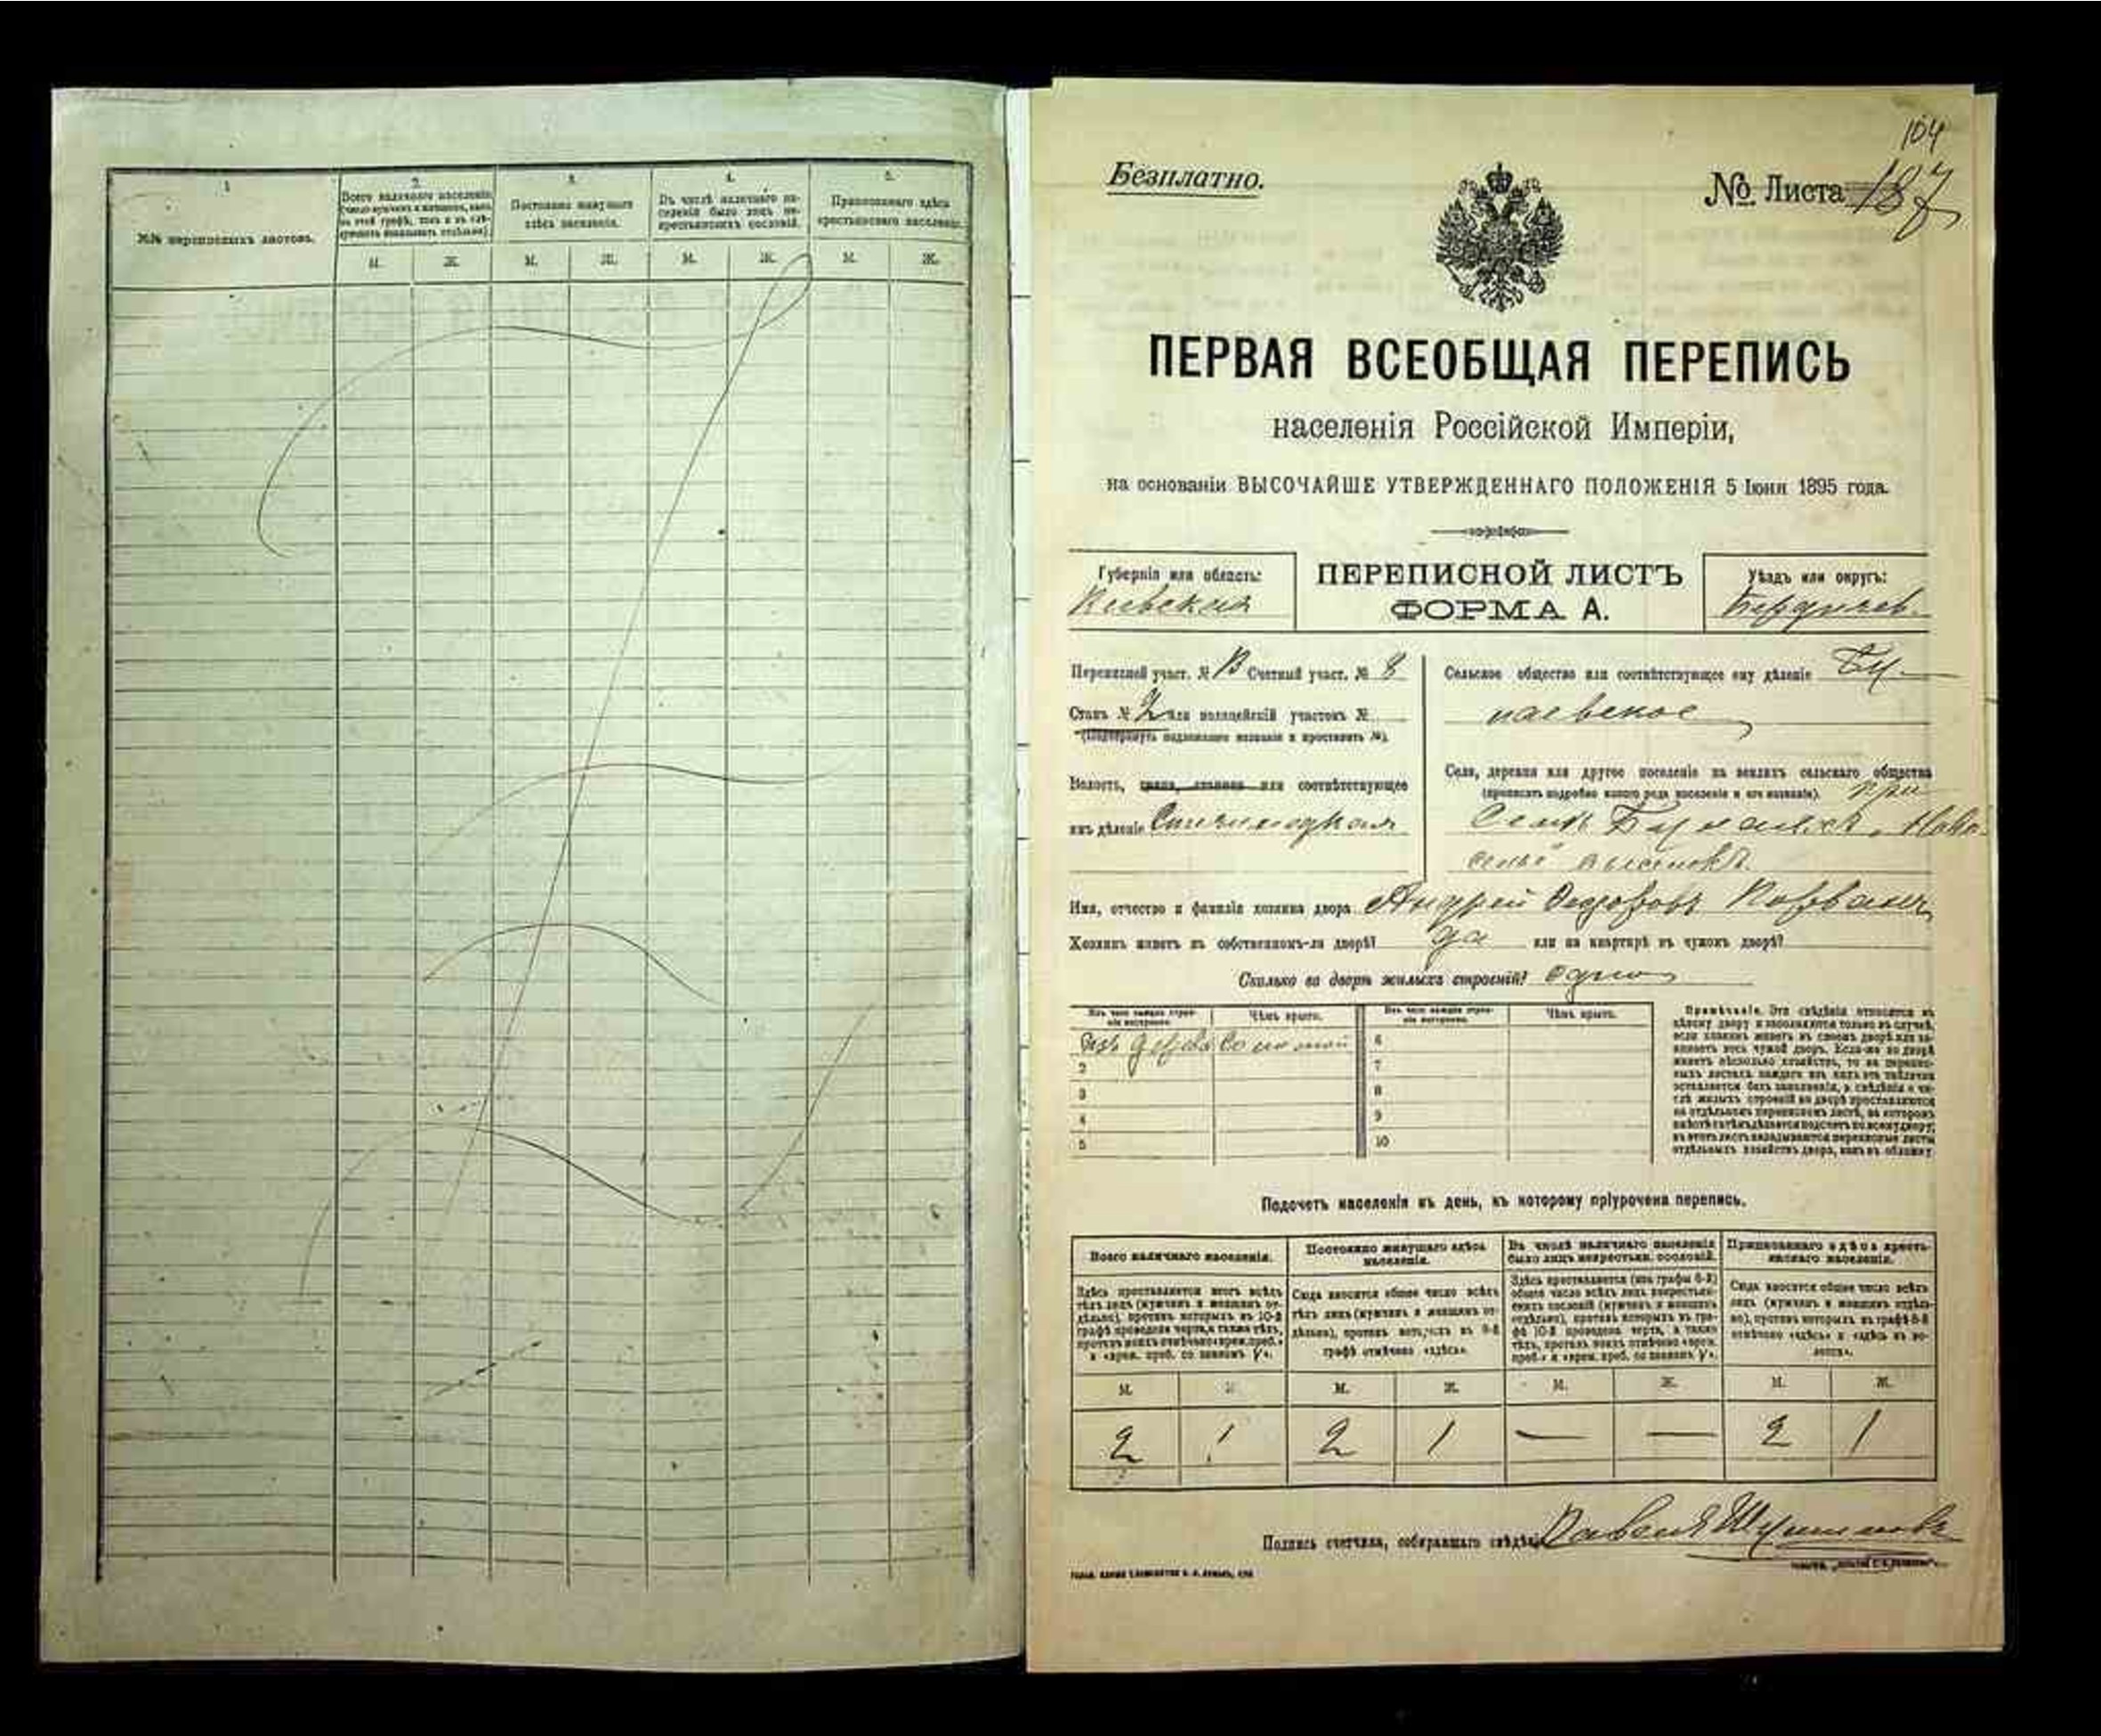 1
№№ переписныхъ листовъ.
2.
Всего наличнаго населенія
3.
Постоянно живущаго
здѣсь населенія.
4.
Въ числѣ наличнаго на-
селенія было лицъ не-
крестьянскихъ сословій.
5.
Приписаннаго здѣсь
крестьянскаго населенія.
М. Ж. М. Ж. М. Ж. М. Ж.
104
Безплатно.
№ Листа 187
ПЕРВАЯ ВСЕОБЩАЯ ПЕРЕПИСЬ
населенія Россійской Имперіи,
на основаніи ВЫСОЧАЙШЕ УТВЕРЖДЕННАГО ПОЛОЖЕНІЯ 5 Іюня 1895 года.
Губернія или область:
Кіевская
ПЕРЕПИСНОЙ ЛИСТЪ
ФОРМА А.
Уѣздъ или округъ:
Бердичев.
Переписной участ. № Счетный участ. № 8
Станъ № 2 или полицейскій участокъ №
(Подчеркнуть подлежащее названіе и проставить №).
Волость, или соотвѣтствующее
имъ дѣленіе
Сельское общество или соотвѣтствующее ему дѣленіе
Села, деревня или другое поселеніе на земляхъ сельскаго общества
(прописать подробно какого рода поселеніе и его названіе). при
Имя, отчество и фамилія хозяина двора Андрей Федоровъ
Хозяинъ живетъ въ собственномъ-ли дворѣ? да или на квартирѣ въ чужомъ дворѣ?
Сколько во дворѣ жилыхъ строеній? одно
Изъ чего каждое строе-
ніе построено.
Чѣмъ крыто.
Изъ чего каждое строе-
ніе построено.
Чѣмъ крыто.
Изъ дерева Соломой 6
2 7
3 8
4 9
5 10
Примѣчаніе. Эти свѣдѣнія относятся къ
цѣлому двору и заполняются только въ случаѣ,
если хозяинъ живетъ въ своемъ дворѣ или за-
нимаетъ весь чужой дворъ. Если-же во дворѣ
живетъ нѣсколько хозяйствъ, то на перепис-
ныхъ листахъ каждаго изъ нихъ эта табличка
оставляется безъ заполненія, а свѣдѣнія о чи-
слѣ жилыхъ строеній во дворѣ проставляются
на отдѣльномъ переписномъ листѣ, на которомъ
вмѣстѣ съ тѣмъ дѣлается подсчетъ по всему двору;
въ этотъ листъ вкладываются переписные листы
отдѣльныхъ хозяйствъ двора, какъ въ обложку.
Подсчетъ населенія въ день, къ которому пріурочена перепись.
Всего наличнаго населенія.
Здѣсь проставляется итогъ всѣхъ
тѣхъ лицъ (мужчинъ и женщинъ от-
дѣльно), противъ которыхъ въ 10-й
графѣ проведена черта, а также тѣхъ,
противъ коихъ отмѣчено «врем. преб.»
и «врем. преб. со знакомъ V».
Постоянно живущаго здѣсь
населенія.
Сюда вносится общее число всѣхъ
тѣхъ лицъ (мужчинъ и женщинъ от-
дѣльно), противъ которыхъ въ 9-й
графѣ отмѣчено «здѣсь».
Въ числѣ наличнаго населенія
было лицъ некрестьян. сословій.
Здѣсь проставляется (изъ графы 6-й)
общее число всѣхъ лицъ некрестьян-
скихъ сословій (мужчинъ и женщинъ
отдѣльно), противъ которыхъ въ гра-
фѣ 10-й проведена черта, а также
тѣхъ, противъ коихъ отмѣчено «врем.
преб.» и «врем. преб. со знакомъ V».
Приписаннаго здѣсь кресть-
янскаго населенія.
Сюда вносится общее число всѣхъ
лицъ (мужчинъ и женщинъ отдѣль-
но), противъ которыхъ въ графѣ 8-й
отмѣчено «здѣсь» и «здѣсь въ во-
лости».
М. Ж. М. Ж. М. Ж. М. Ж.
2 1 2 1 — — 2 1
Подпись счетчика, собиравшаго свѣдѣнія